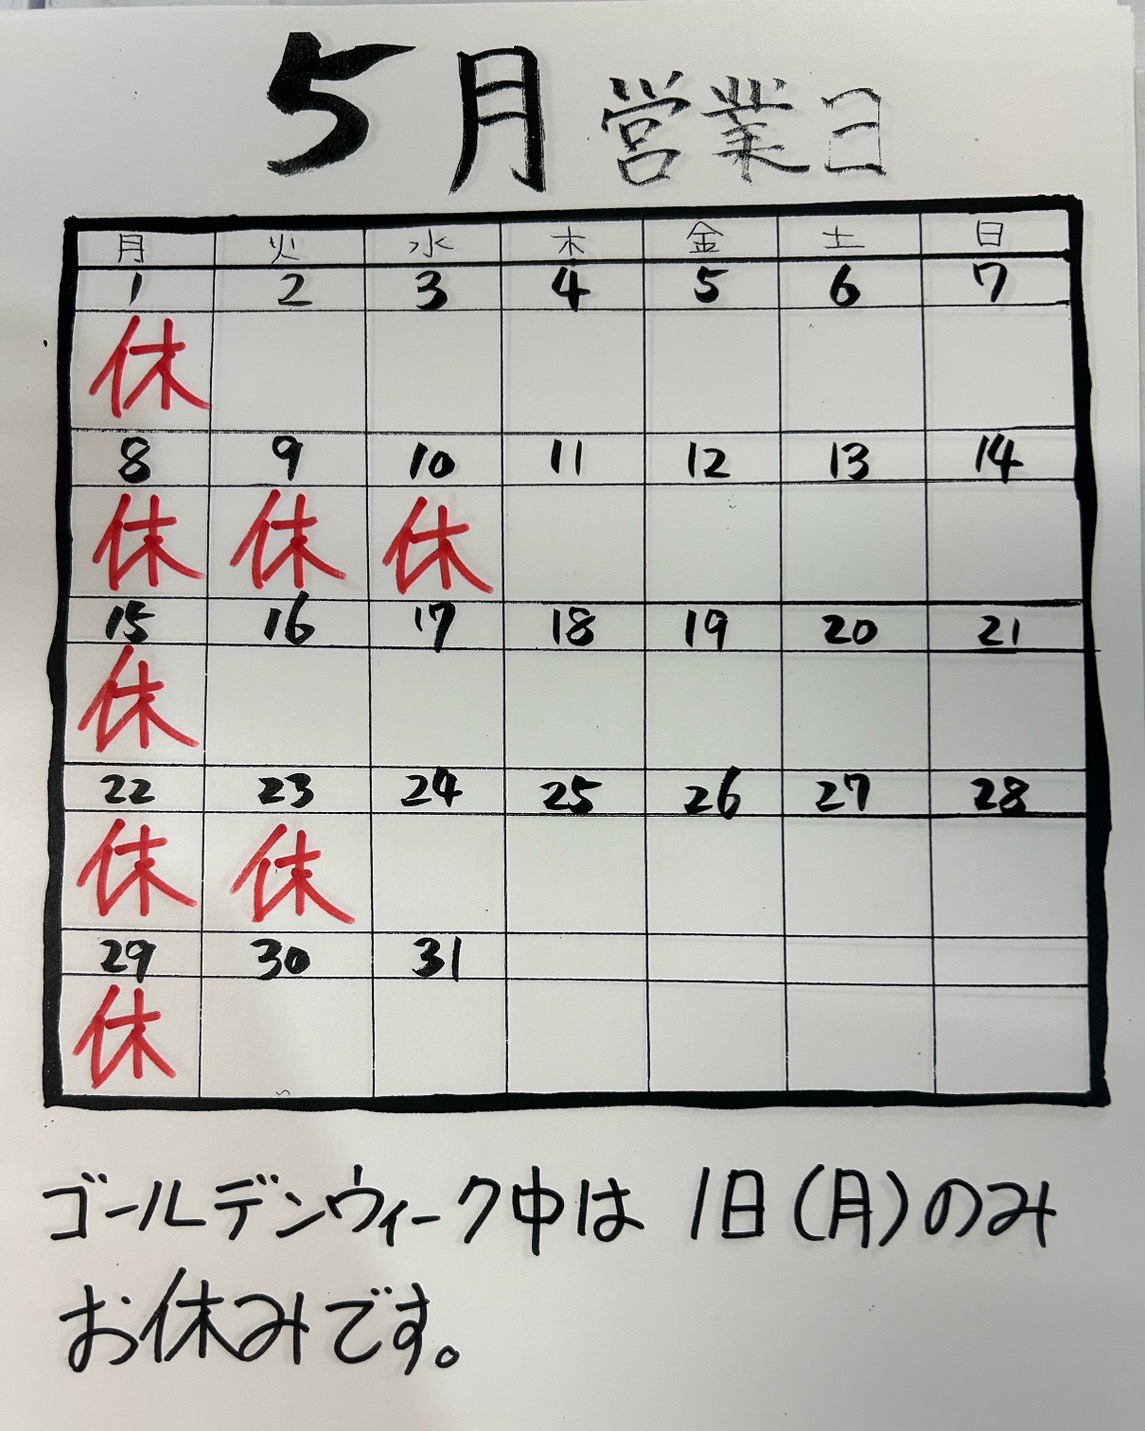 5月 営業日
月 火 水 木 金 土 日
1 2 3 4 5 6 7
休
8 9 10 11 12 13 14
休 休 休
15 16 17 18 19 20 21
休
22 23 24 25 26 27 28
休 休
29 30 31
休
ゴールデンウィーク中は 1日(月)のみ
お休みです。